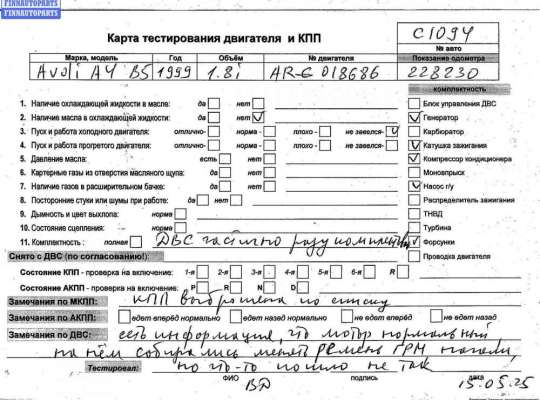 FINNAUTOPARTS
FINNAUTOPARTS
Карта тестирования двигателя и КПП
C1094
№ авто
Марка, модель Год Объём № двигателя Показание одометра
Audi A4 B5 1999 1.8i ARG 018686 228230
комплектность
1. Наличие охлаждающей жидкости в масле: да нет Блок управления ДВС
2. Наличие масла в охлаждающей жидкости: да нет Генератор
3. Пуск и работа холодного двигателя: отлично- норма - плохо - не завелся- Карбюратор
4. Пуск и работа прогретого двигателя: отлично- норма - плохо - не завелся- Катушка зажигания
5. Давление масла: есть нет Компрессор кондиционера
6. Картерные газы из отверстия масляного щупа: да нет Моновпрыск
7. Наличие газов в расширительном бачке: да нет Насос г/у
8. Посторонние стуки или шумы при работе: да нет Распределитель зажигания
9. Дымность и цвет выхлопа: норма ТНВД
10. Состояние сцепления: норма Турбина
11. Комплектность: полная ДВС частично разукомплектов Форсунки
Снято с ДВС (по согласованию!): Проводка двигателя
Состояние КПП - проверка на включение: 1-я 2-я 3-я 4-я 5-я 6-я R
Состояние АКПП - проверка на включение: P R N D
Замечания по МКПП: КПП выброшена по списку
Замечания по АКПП: едет вперёд нормально едет назад нормально не едет вперёд не едет назад
Замечания по ДВС: есть информация, что мотор нормальный
на нём собирались менять ремень ГРМ начали,
Тестировал: но что-то пошло не так
ФИО подпись дата
ВД 15.05.25